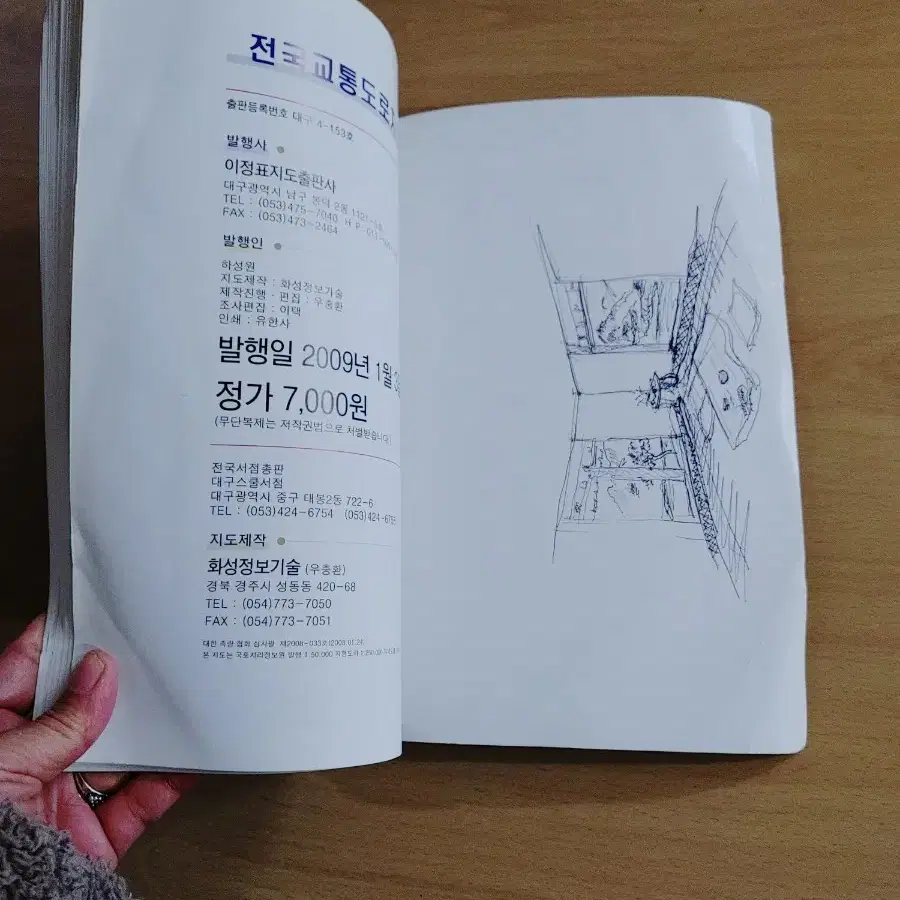 전국교통도로
출판등록번호 대구 4-153호
발행사
이정표지도출판사
대구광역시 남구 봉덕 2동
TEL : (053)475-7040 H P
FAX : (053)473-2464
발행인
하성원
지도제작 : 화성정보기술
제작진행·편집 : 우충환
조사편집 : 이택
인쇄 : 유한사
발행일 2009년 1월
정가 7,000원
(무단복제는 저작권법으로 처벌받습니다)
전국서점총판
대구스쿨서점
대구광역시 중구 대봉2동 722-6
TEL : (053)424-6754
지도제작
화성정보기술 (우충환)
경북 경주시 성동동 420-68
TEL : (054)773-7050
FAX : (054)773-7051
대한 측량 협회 심사필
본 지도는 국토지리정보원 발행